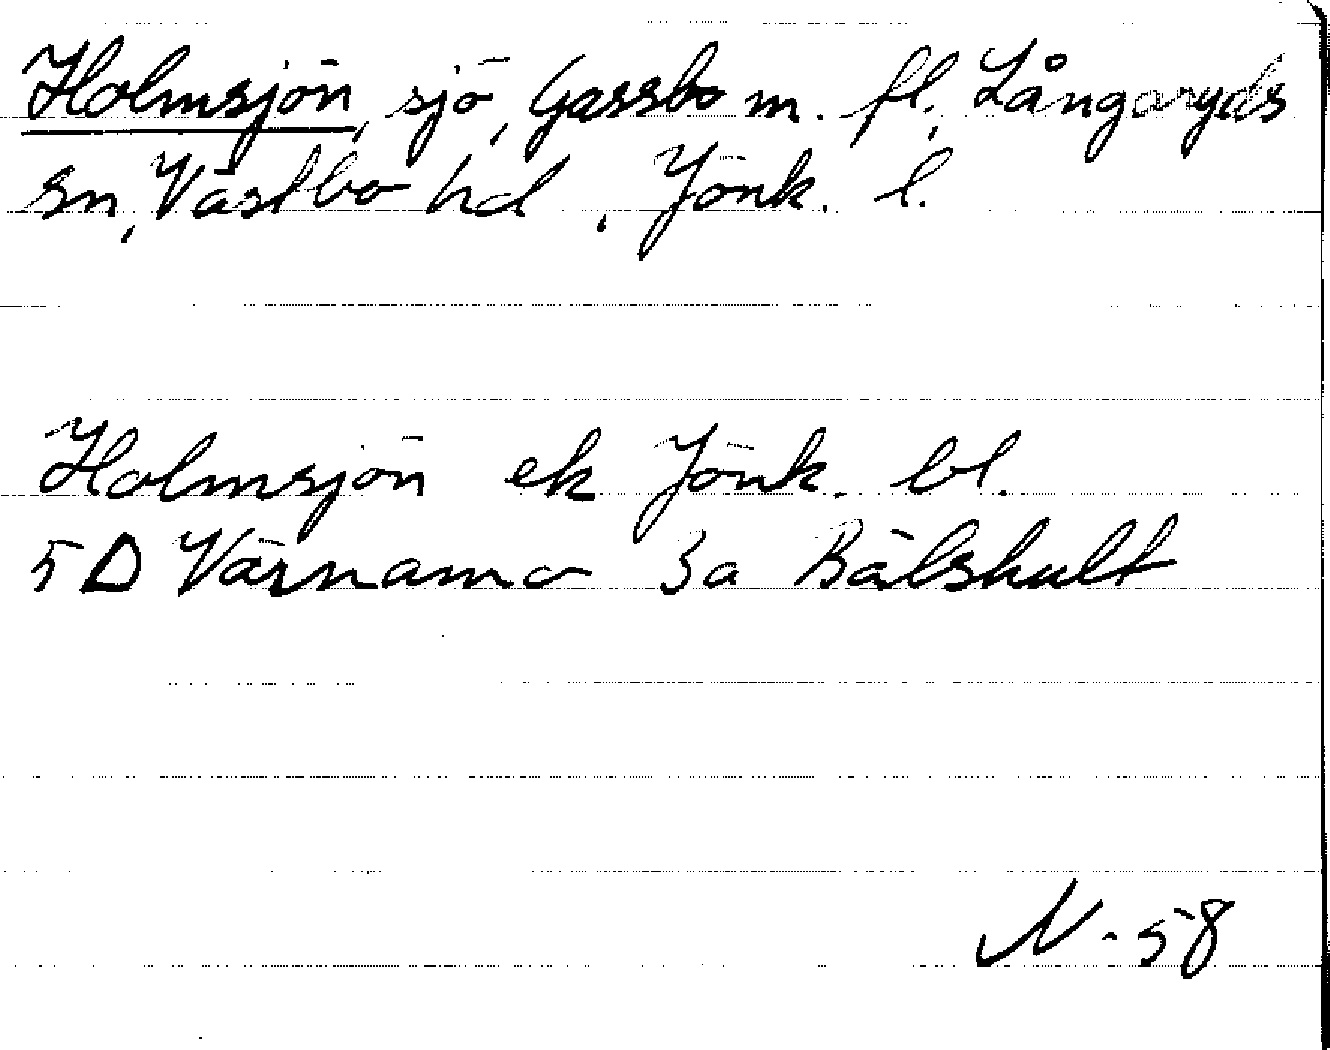 Holmsjön, sjö, Gassbo m. fl., Långaryds
sn, Västbo hd, Jönk. l.
Holmsjön ek Jönk. bl.
5D Värnamo 3a Bälshult
N-58